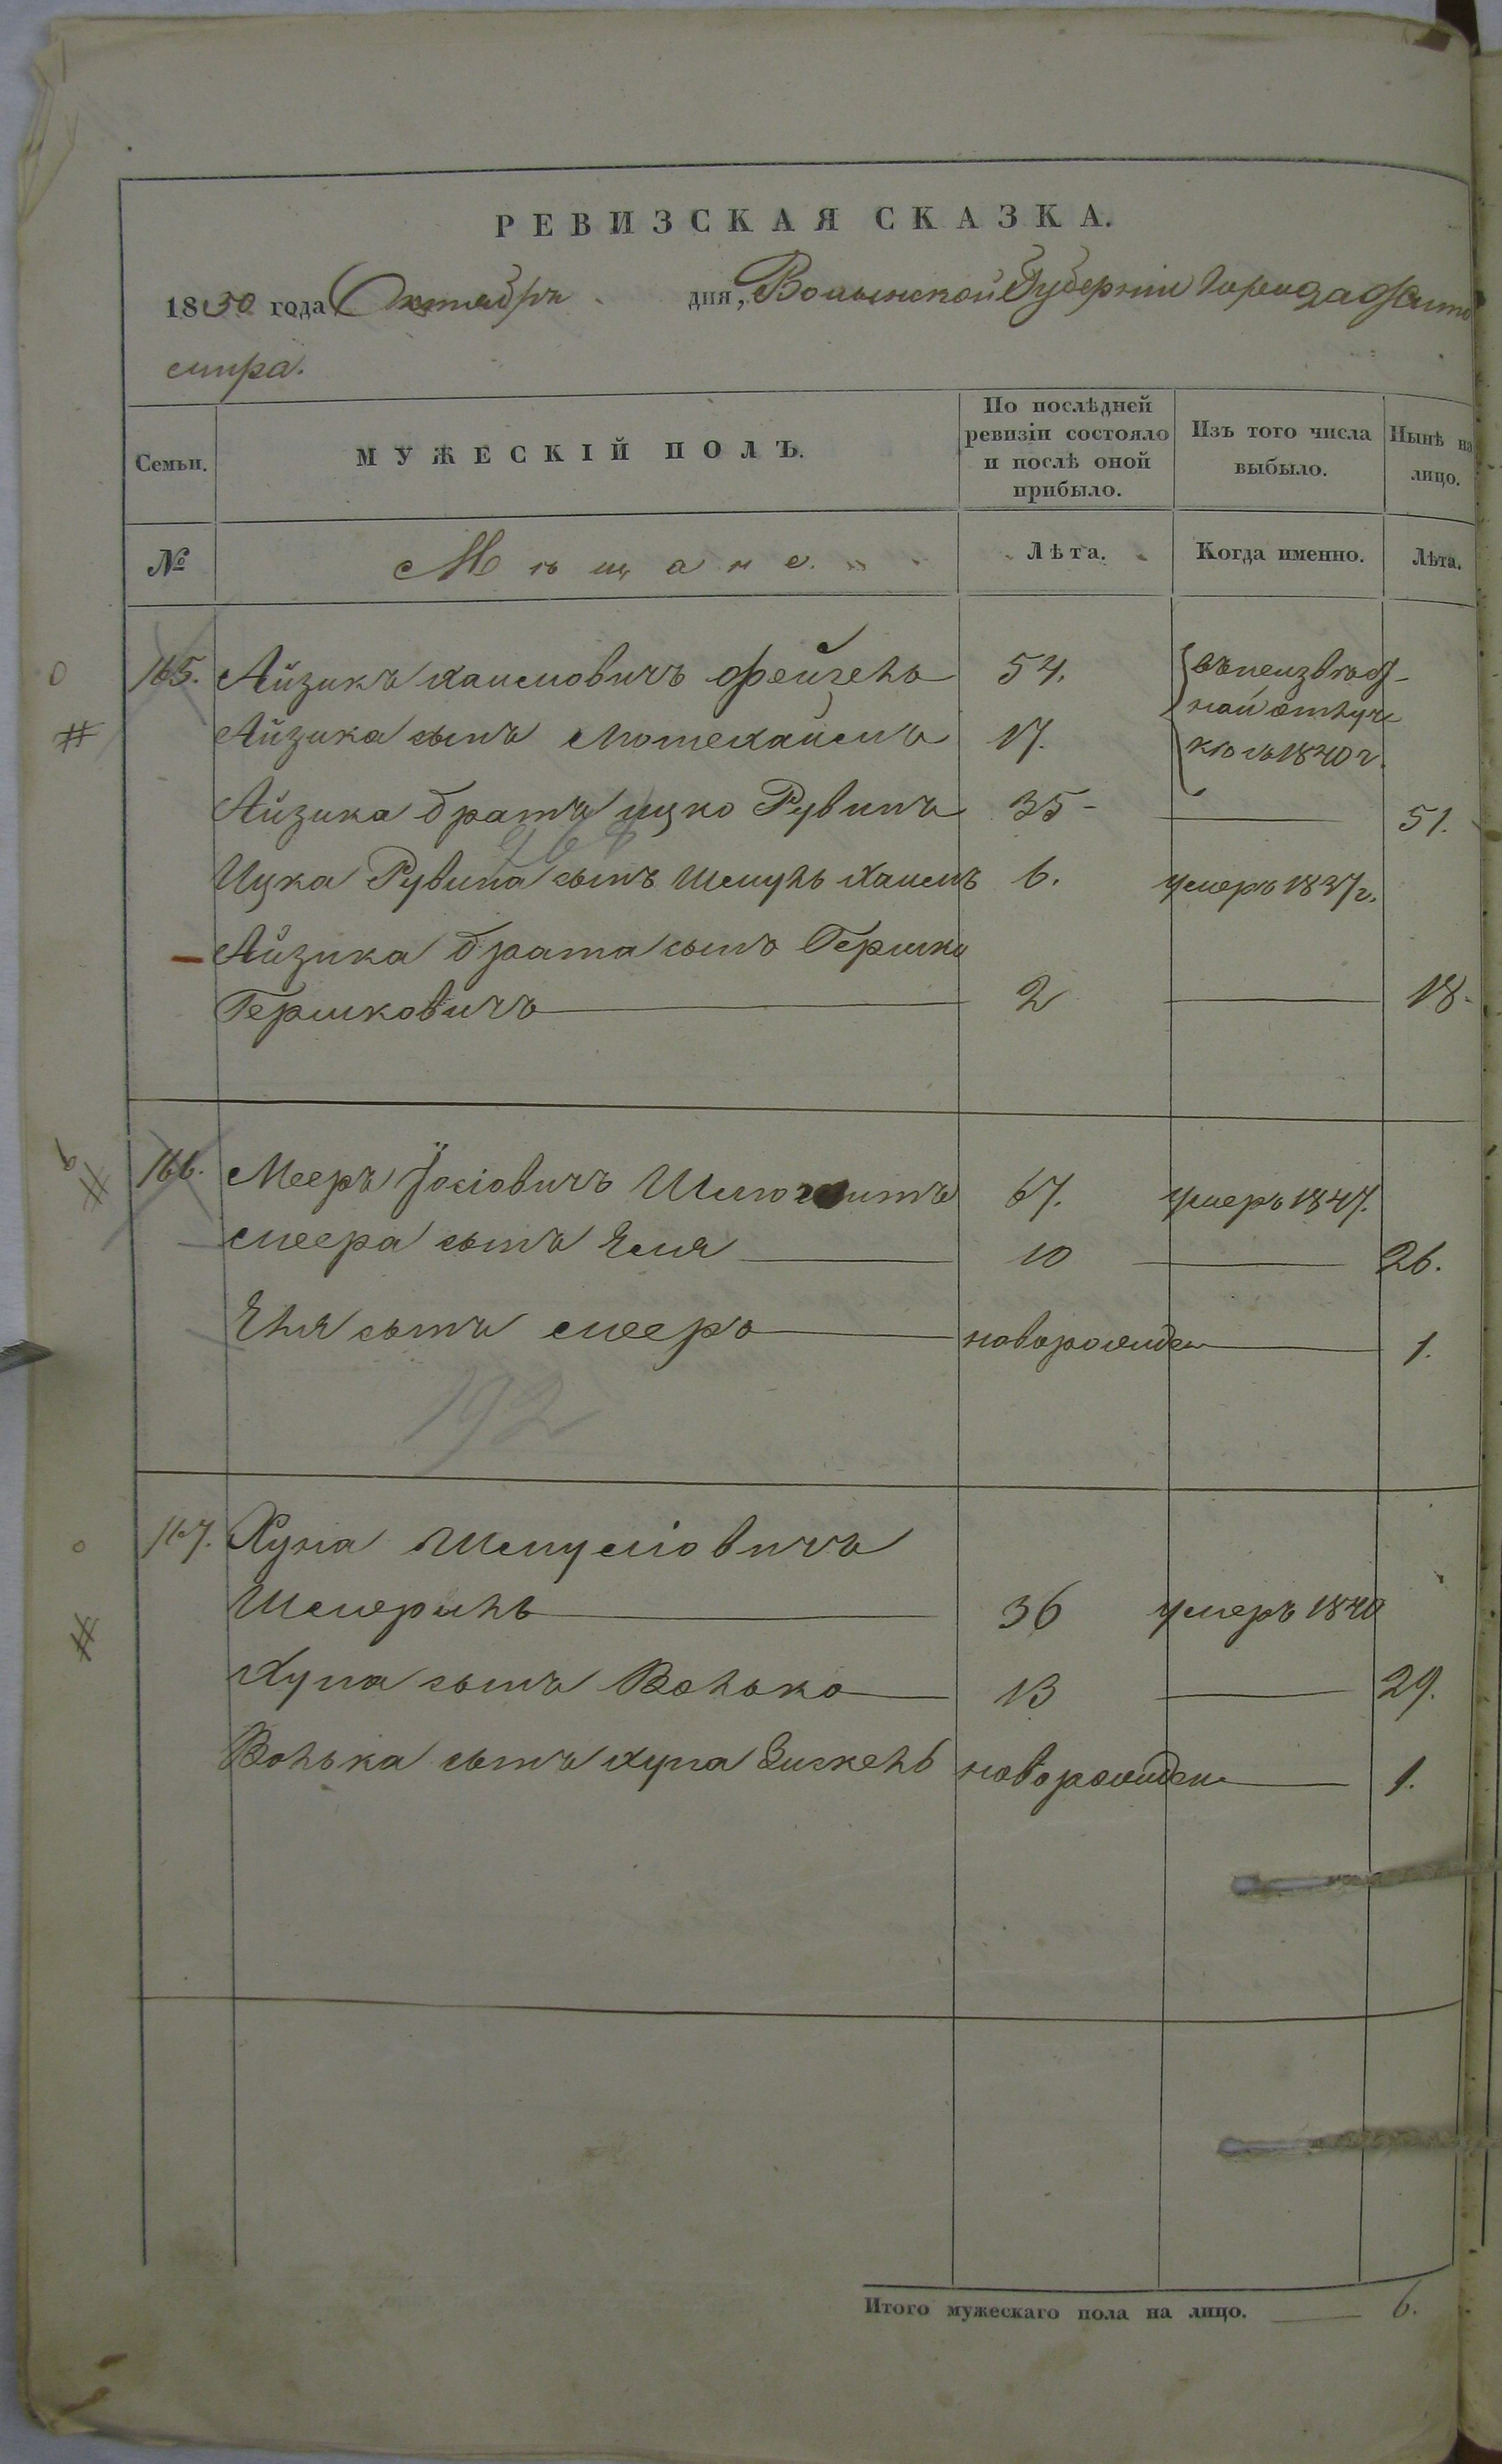 РЕВИЗСКАЯ СКАЗКА.
1850 года Октября дня, Волынской Губерніи Города Жито
мира.
Семьи. МУЖЕСКІЙ ПОЛЪ. По послѣдней ревизіи состояло и послѣ оной прибыло. Изъ того числа выбыло. Нынѣ на лицо.
№ Мѣщане. Лѣта. Когда именно. Лѣта.
165. Айзикъ Хаимовичъ Фейгель 54. въ неизвѣст-
ной отлуч
Айзика сынъ Мотехаимъ 17. кѣ съ 1840 г.
Айзика братъ Ицко Рувинъ 35 - 51.
Ицка Рувина сынъ Шмуль Хаимъ 6. умеръ 1837 г.
Айзика брата сынъ Гершко
Гершковичъ 2 18.
166. Мееръ Йосіовичъ 67. умеръ 1847.
Меера сынъ Еля 10 26.
Еля сынъ Мееръ новорожден 1.
192
167. Хуна Шмуліовичъ
Шмерилъ 36 умеръ 1840
Хуна сынъ Волько 13 29.
Волька сынъ Хуна Зискель новорожден 1.
Итого мужескаго пола на лицо. 6.